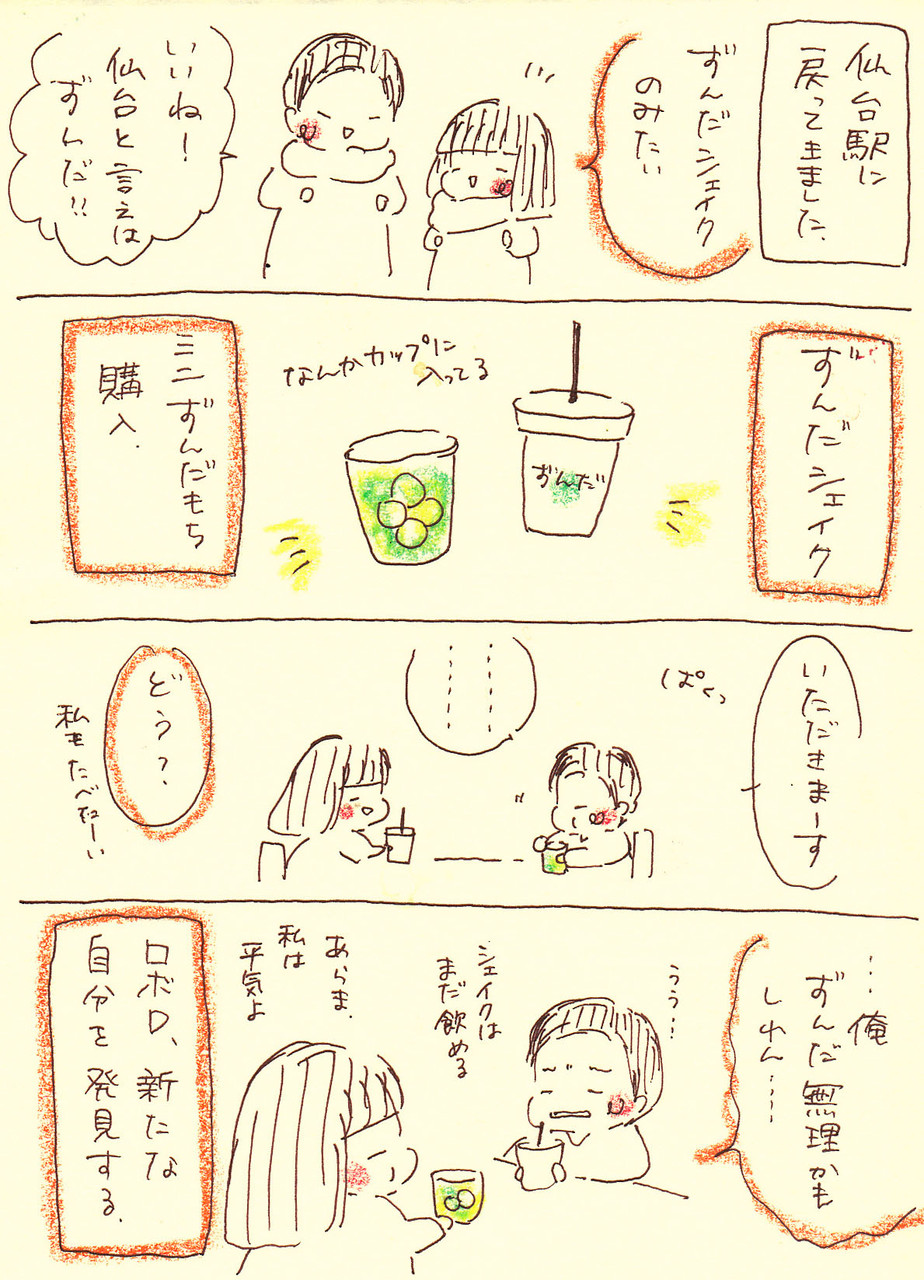 仙台駅に
戻ってきました、
ずんだシェイク
のみたい
いいね！
仙台と言えば
ずんだ!!
ずんだシェイク
ずんだ
なんかカップに
入ってる
ミニずんだもち
購入.
いただきまーす
ぱくっ
どう？
私もたべたーい
…俺
ずんだ無理かも
しれん……
うう…
シェイクは
まだ飲める
あらま.
私は
平気よ
ロボロ、新たな
自分を発見する.